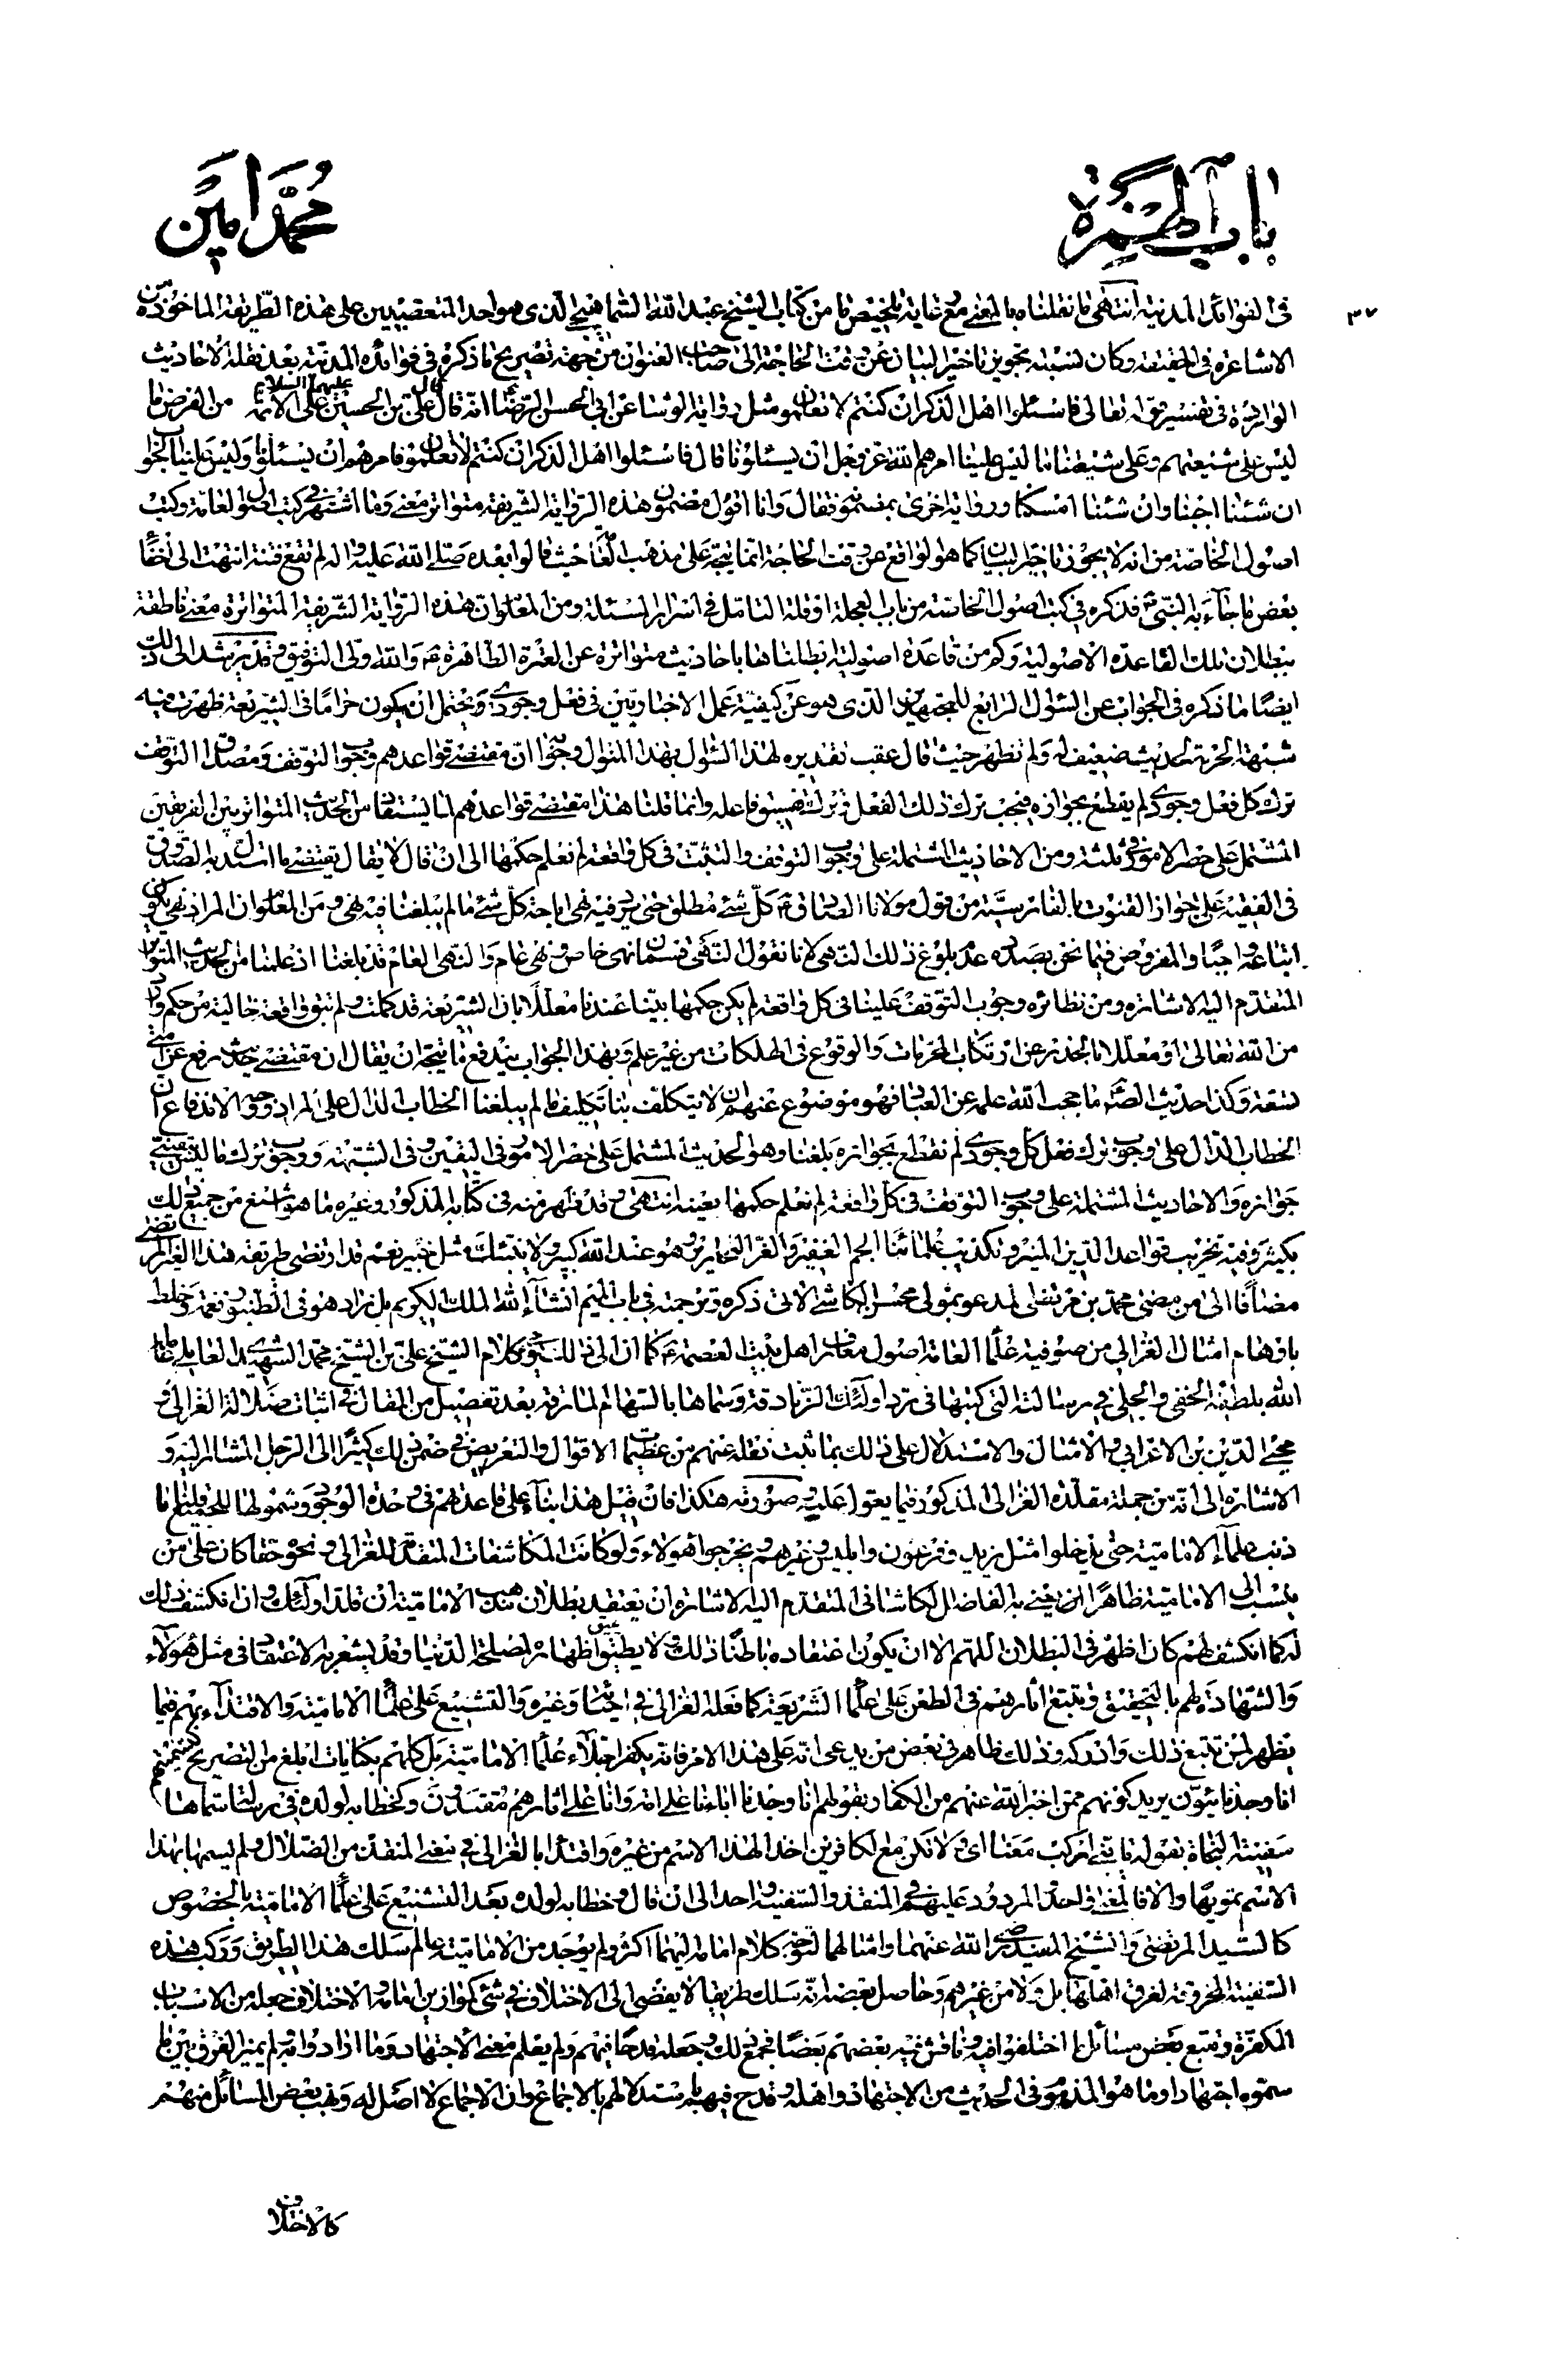 باب الهمزة
محمد امين
٣٧
فى الفوائد المدنية انتهى ما نقلناه بالمعنى مع غاية تلخيص ما من كتاب الشيخ عبد الله السماهيجى الذى هو احد المتعصبين على هذه الطريقة الماخوذة من
الاشاعرة فى الحقيقة وكان نسبته تجويز تاخير البيان عن وقت الحاجة الى صاحب العنوان من جهة تصريح ما ذكره فى فوائده المدنية بعد نقله الاحاديث
الواردة فى تفسير قوله تعالى فاسئلوا اهل الذكر ان كنتم لا تعلمون مثل رواية الوشا عن ابى الحسن الرضا انه قال قال على بن الحسين عليهما السلام على الائمة من الفرض ما
ليس على شيعتهم وعلى شيعتنا ما ليس علينا امرهم الله عز وجل ان يسئلونا قال فاسئلوا اهل الذكر ان كنتم لا تعلمون فامرهم ان يسئلونا وليس علينا الجواب
ان شئنا اجبنا وان شئنا امسكنا ورواية اخرى بمضمونه فقال وانا اقول مضمون هذه الرواية الشريفة متواتر معنى وما اشتهر فى كتب اصول العامة وكتب
اصول الخاصة من انه لا يجوز تاخير البيان كما هو الواقع عن وقت الحاجة انما يتجه على مذهب العامة حيث قالوا بعده صلى الله عليه واله لم تقع فتنة انتهت الى اخفاء
بعض ما جاء به النبى فذكره فى كتب اصول الخاصة من باب العجلة او قلة التامل فى اسرار المسئلة ومن المعلوم ان هذه الرواية الشريفة المتواترة معنى ناطقة
ببطلان تلك القاعدة الاصولية وكم من قاعدة اصولية ابطلناها باحاديث متواترة عن العترة الطاهرة والله ولى التوفيق وقد يرشد الى ذلك
ايضا ما ذكره فى الجواب عن السؤال الرابع للمجتهدين الذى هو عن كيفية عمل الاخباريين فى فعل وجودى ويحتمل ان يكون حراما فى الشريعة ظهرت فيه
شبهة الحرمة لحديث ضعيف او لم تظهر حيث قال عقب تقديره لهذا السؤال بهذا المنوال وجوابه ان مقتضى قواعدهم وجوب التوقف ومصداق التوقف
ترك كل فعل وجودى لم يقطع بجوازه فيجب ترك ذلك الفعل وترك تفسيق فاعله وانما قلنا هذا مقتضى قواعدهم لما يستفاد من الحديث المتواتر بين الفريقين
المشتمل على حصر الامور فى ثلثة ومن الاحاديث المشتملة على وجوب التوقف والتثبت فى كل واقعة لم نعلم حكمها الى ان قال لا يقال يقتضى ما استدل به الصدوق
فى الفقيه على جواز القنوت بالفارسية من قول مولانا الصادق كل شئ مطلق حتى يرد فيه نهى اباحة كل شئ ما لم يبلغنا فيه نهى ومن المعلوم ان المراد نهى يكون
اتباعه واجبا والمفروض فيما نحن بصدده عدم بلوغ ذلك النهى لانا نقول النهى قسمان نهى خاص ونهى عام والنهى العام قد بلغنا اذ علمنا من الحديث المتواتر
المتقدم اليه الاشارة ومن نظائره وجوب التوقف علينا فى كل واقعة لم يكن حكمها بينا عندنا معللا بان الشريعة قد كملت ولم تبق واقعة خالية من حكم وارد
من الله تعالى او معللا بالحذر عن ارتكاب المحرمات والوقوع فى الهلكات من غير علم وبهذا الجواب يندفع ما يتجه ان يقال ان مقتضى حديث رفع عن امتى
تسعة وكذا حديث الصادق ما حجب الله علمه عن العباد فهو موضوع عنهم ان لا يتكلف بنا تكليف ما لم يبلغنا الخطاب الدال على المراد ووجه الاندفاع ان
الخطاب الدال على وجوب ترك فعل كل وجودى لم نقطع بجوازه بلغنا وهو الحديث المشتمل على حصر الامور فى اليقين وفى الشبهة ووجوب ترك ما ليس بيقين
جوازه والاحاديث المشتملة على وجوب التوقف فى كل واقعة لم نعلم حكمها بعينه انتهى وقد ظهر منه فى كتابه المذكور وغيره ما هو اشنع من جميع ذلك
بكثير وفيه تخريب قواعد الدين المنير وتكذيب علمائنا الجم الغفير والغر النحارير وهو عند الله كبير ولا ينبئك مثل خبير نعم قد ارتضى طريقة هذا الغير المرتضى
مضافا الى من مضى محمد بن مرتضى المدعو بمولى محسن الكاشى الاتى ذكره وترجمته فى باب الميم انشاء الله الملك الكريم بل زاد هو فى الطنبور نغمة وخلط
باوهام امثال الغزالى من صوفية علماء العامة اصول معارف اهل بيت العصمة كما ان الى ذلك ينظر كلام الشيخ على بن الشيخ محمد الشهيدى العاملى عامله
الله بلطفه الخفى والجلى فى رسالته التى كتبها فى رد اولئك الزنادقة وسماها بالسهام المارقة بعد تفصيل من المقال فى اثبات ضلالة الغزالى و
محيى الدين بن الاعرابى والامثال والاستدلال على ذلك بما ثبت نقله عنهم من عظيمات الاقوال والتعريض فى ضمن ذلك كثيرا الى الرجل المشار اليه و
الاشارة الى انه من جملة مقلدة الغزالى المذكور فيما يعول عليه صورته هكذا فان قيل هذا بناء على قاعدتهم فى وحدة الوجود وشمولها للجميع قلنا ما
ذنب علماء الامامية حتى يدخلوا مثل يزيد وفرعون وابليس وغيرهم ويخرجوا هؤلاء ولو كانت المكاشفات المتقدمة للغزالى ونحوه حقا كان على من
ينسب الى الامامية ظاهرا يعنى به الفاضل الكاشانى المتقدم اليه الاشارة ان يعتقد بطلان مذهب الامامية ان قلد اولئك وان انكشف ذلك
له كما انكشف لهم كان اظهر فى البطلان اللهم الا ان يكون اعتقاده باطنا ذلك ولا يطيق اظهاره لمصلحة الدنيا وقد يشعر به الاعتقاد فى مثل هؤلاء
والشهادة لهم بالتحقيق وتتبع اثارهم فى الطعن على علماء الشريعة كما فعله الغزالى فى احيائه وغيره والتشنيع على علماء الامامية والاقتداء بهم فيما
يظهر لمن تتبع ذلك وادركه وذلك ظاهر فى بعض من يدعى انه على هذا الامر فانه يكفر اجلاء علماء الامامية بل كلهم بكنايات ابلغ من التصريح كتسميتهم
انا وجدنائيون يريد كونهم ممن اخبر الله عنهم من الكفار بقولهم انا وجدنا اباءنا على امة وانا على اثارهم مقتدون وكخطابه لولده فى رسالة سماها
سفينة النجاة بقوله يا بنى اركب معنا اى ولا تكن مع الكافرين اخذا لهذا الاسم من غيره واقتداء بالغزالى فى معنى المنقذ من الضلال ولم يسمها بهذا
الاسم تمويها والا فالمغزى واحد المردود عليهم فى المنقذ والسفينة واحد الى ان قال وخطابه لولده بعد التشنيع على علماء الامامية بالخصوص
كالسيد المرتضى والشيخ المفيد رضى الله عنهما وامثالهما لتوجه كلام امامه اليهما اكثر ولم يوجد من الامامية عالم سلك هذا الطريق وركب هذه
السفينة المخروقة لغرق اهلها بل ولا من غيرهم وحاصل بعضه انه سلك طريقا لا يفضى الى الاختلاف فى شئ كموازين امامه والاختلاف جعله من الاسباب
المكفرة وتتبع بعض مسائل ما اختلفوا فيه وناقش فيه بعضهم بعضا فجمع ذلك وجعله قدحا فيهم ولم يعلم معنى الاجتهاد وما ارادوا به ولم يميز الفرق بين ما
سموه اجتهادا وما هو المذموم فى الحديث من الاجتهاد واهله وقدح فيهم باستدلالهم بالاجماع وان الاجماع لا اصل له وذهب بعض المسائل منهم
كالاختلاف